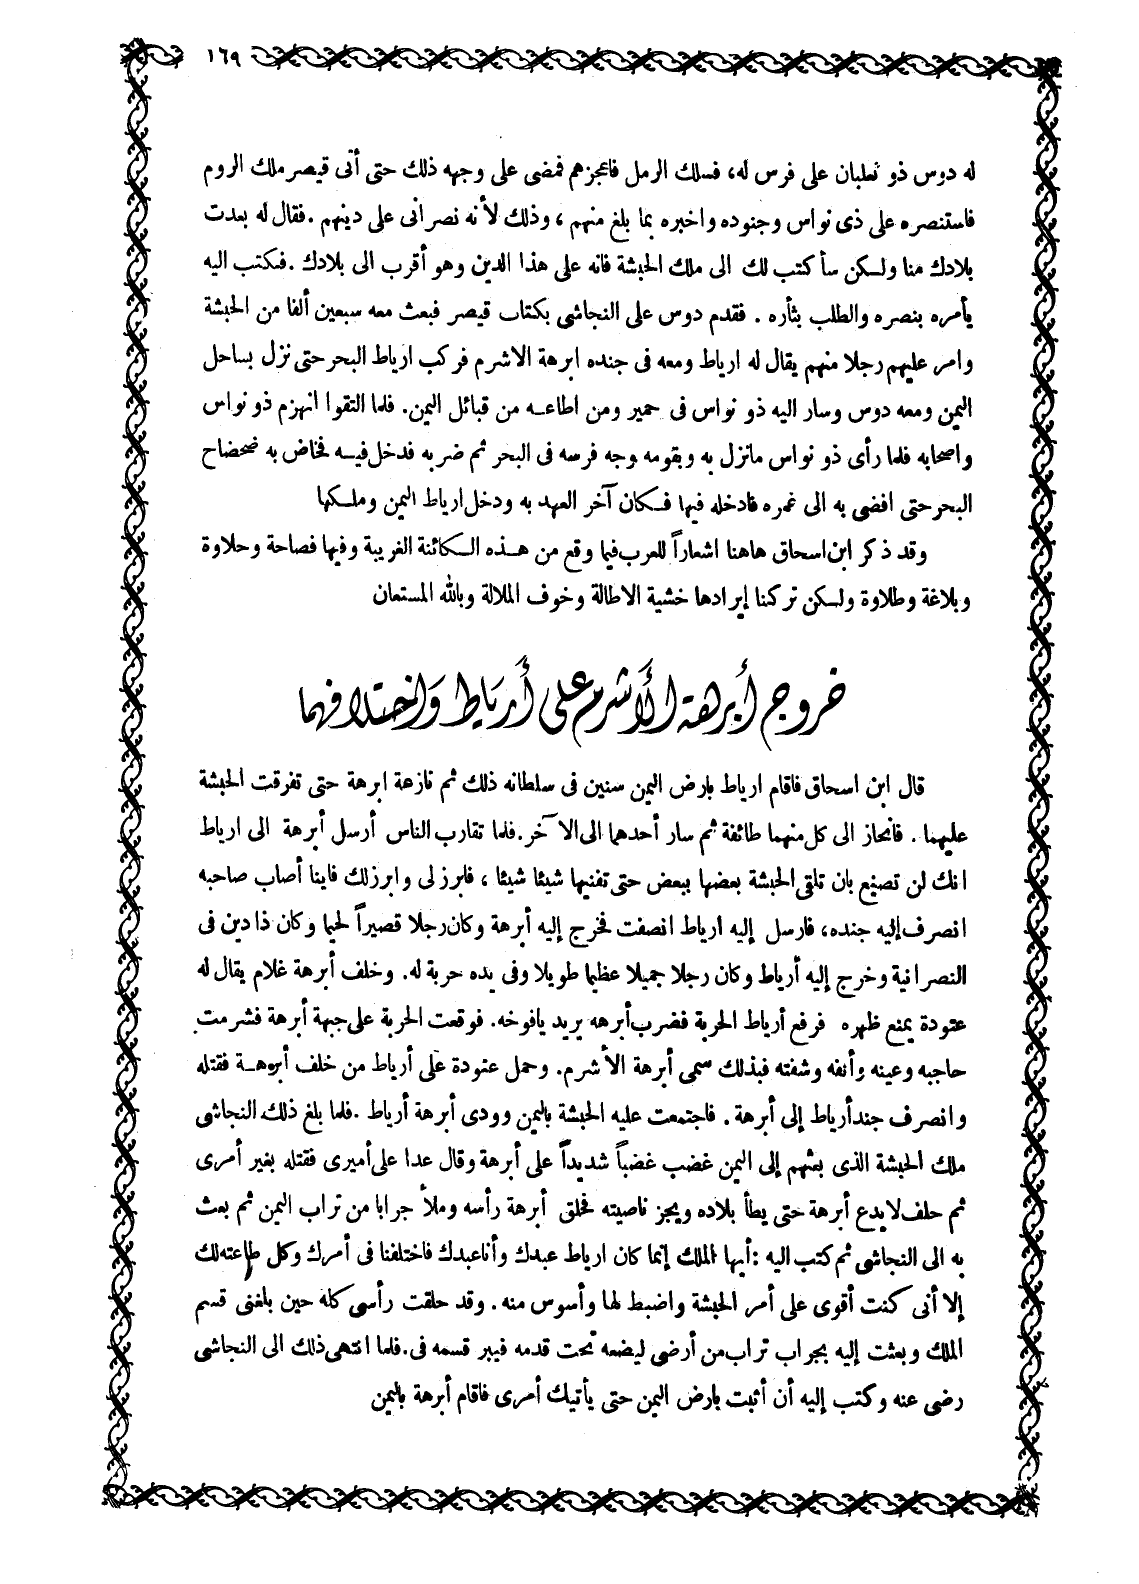 ١٦٩
له دوس ذو ثعلبان على فرس له، فسلك الرمل فاعجزهم فمضى على وجهه ذلك حتى أتى قيصر ملك الروم
فاستنصره على ذى نواس وجنوده واخبره بما بلغ منهم ، وذلك لأنه نصرانى على دينهم . فقال له بعدت
بلادك منا ولكن سأكتب لك الى ملك الحبشة فانه على هذا الدين وهو أقرب الى بلادك . فكتب اليه
يأمره بنصره والطلب بثأره . فقدم دوس على النجاشى بكتاب قيصر فبعث معه سبعين ألفا من الحبشة
وامر عليهم رجلا منهم يقال له ارياط ومعه فى جنده ابرهة الاشرم فركب ارياط البحر حتى نزل بساحل
اليمن ومعه دوس وسار اليه ذو نواس فى حمير ومن اطاعه من قبائل اليمن. فلما التقوا انهزم ذو نواس
واصحابه فلما رأى ذو نواس مانزل به وبقومه وجه فرسه فى البحر ثم ضربه فدخل فيه فخاض به ضحضاح
البحر حتى افضى به الى غمره فادخله فيها فكان آخر العهد به ودخل ارياط اليمن وملكها
وقد ذكر ابن اسحاق هاهنا اشعاراً للعرب فيما وقع من هذه الكائنة الغريبة وفيها فصاحة وحلاوة
وبلاغة وطلاوة ولكن تركنا إيرادها خشية الاطالة وخوف الملالة وبالله المستعان
خروج أبرهة الأشرم على أرياط واختلافهما
قال ابن اسحاق فاقام ارياط بارض اليمن سنين فى سلطانه ذلك ثم نازعة ابرهة حتى تفرقت الحبشة
عليهما . فانحاز الى كل منهما طائفة ثم سار أحدهما الى الآخر . فلما تقارب الناس أرسل أبرهة الى ارياط
انك لن تصنع بان تلقى الحبشة بعضها ببعض حتى تفنيها شيئا شيئا ، فابرز لى وابرز لك فاينا أصاب صاحبه
انصرف إليه جنده، فارسل إليه ارياط انصفت فخرج إليه أبرهة وكان رجلا قصيراً لحيما وكان ذا دين فى
النصرانية وخرج إليه أرياط وكان رجلا جميلا عظيما طويلا وفى يده حربة له. وخلف أبرهة غلام يقال له
عتودة يمنع ظهره فرفع أرياط الحربة فضرب أبرهه يريد يافوخه. فوقعت الحربة على جبهة أبرهة فشرمت
حاجبه وعينه وأنفه وشفته فبذلك سمى أبرهة الأشرم. وحمل عتودة على أرياط من خلف أبرهة فقتله
وانصرف جند أرياط إلى أبرهة . فاجتمعت عليه الحبشة باليمن وودى أبرهة أرياط . فلما بلغ ذلك النجاشى
ملك الحبشة الذى بعثهم إلى اليمن غضب غضباً شديداً على أبرهة وقال عدا على أميرى فقتله بغير أمرى
ثم حلف لا يدع أبرهة حتى يطأ بلاده ويجز ناصيته فحلق أبرهة رأسه وملأ جرابا من تراب اليمن ثم بعث
به الى النجاشى ثم كتب اليه : أيها الملك إنما كان ارياط عبدك وأنا عبدك فاختلفنا فى أمرك وكل طاعته لك
إلا أنى كنت أقوى على أمر الحبشة واضبط لها وأسوس منه. وقد حلقت رأسى كله حين بلغنى قسم
الملك وبعثت إليه بجراب تراب من أرضى ليضعه تحت قدمه فيبر قسمه فى. فلما انتهى ذلك الى النجاشى
رضى عنه وكتب إليه أن أثبت بارض اليمن حتى يأتيك أمرى فاقام أبرهة باليمن